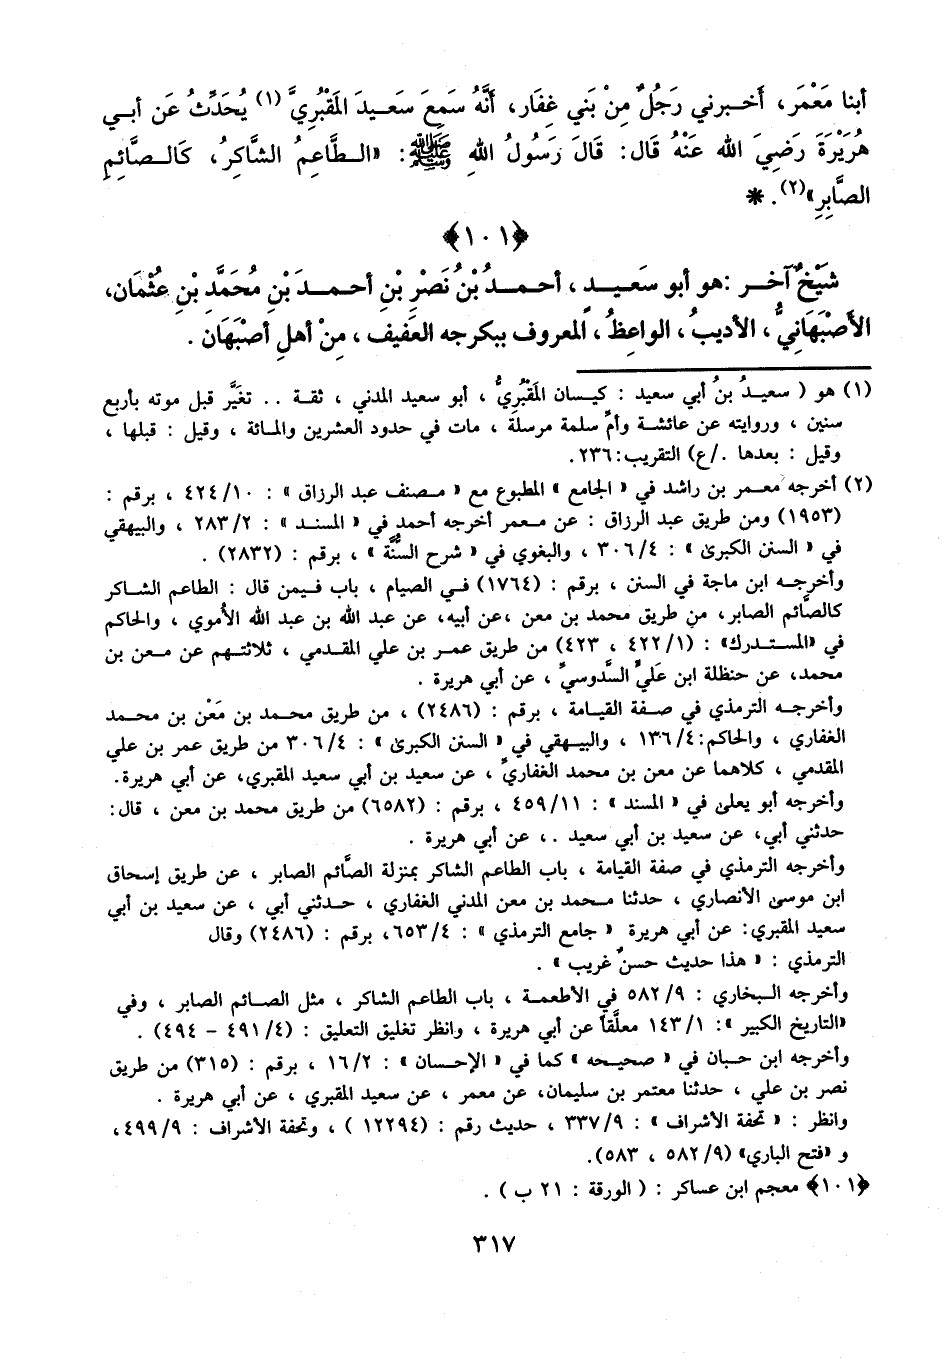 أبنا مَعْمَر، أَخبرني رَجُلٌ مِنْ بَني غِفَار، أَنَّهُ سَمِعَ سَعيدَ المَقْبُرِيَّ (١) يُحَدِّثُ عَن أبي
هُرَيْرَةَ رَضِيَ الله عَنْهُ قَال: قَالَ رَسُولُ اللهِ ﷺ: «الطَّاعِمُ الشَّاكرُ، كَالصَّائِمِ
الصَّابِرِ»(٢). *
﴿١٠١﴾
شَيْخٌ آخَر : هو أبو سَعيدٍ ، أحمدُ بْنُ نَصْرِ بْنِ أحمدَ بْنِ مُحَمَّدِ بْنِ عثْمَان،
الأَصْبَهَانيُّ ، الأديبُ ، الواعِظُ ، المعروف ببكرجه العَفيف ، مِنْ أهلِ أصْبَهَان .
(١) هو ( سعيدُ بنُ أبي سعيد : كيسان المَقْبُرِيُّ ، أبو سعيد المدني ، ثقة .. تغيَّر قبل موته بأربع
سنين ، وروايته عن عائشة وأمِّ سلمة مرسلة ، مات في حدود العشرين والمائة ، وقيل : قبلها ،
وقيل : بعدها ./ع) التقريب: ٢٣٦.
(٢) أخرجه معمر بن راشد في « الجامع » المطبوع مع « مصنف عبد الرزاق » : ٤٢٤/١٠ ، برقم :
(١٩٥٣) ومن طريق عبد الرزاق : عن معمر أخرجه أحمد في « المسند » : ٢٨٣/٢ ، والبيهقي
في « السنن الكبرى » : ٣٠٦/٤ ، والبغوي في « شرح السُّنَّة » ، برقم : (٢٨٣٢) .
وأخرجه ابن ماجة في السنن ، برقم : (١٧٦٤) في الصيام ، باب فيمن قال : الطاعم الشاكر
كالصَّائم الصابر، من طريق محمد بن معن ،عن أبيه، عن عبد الله بن عبد الله الأموي ، والحاكم
في «المستدرك» : (٤٢٢/١ ، ٤٢٣) من طريق عمر بن علي المقدمي ، ثلاثتهم عن معن بن
محمد، عن حنظلة ابن عَليٍّ السَّدوسيِّ ، عن أبي هريرة .
وأخرجه الترمذي في صفة القيامة ، برقم : (٢٤٨٦) ، من طريق محمد بن مَعْن بن محمد
الغفاري ، والحاكم: ١٣٦/٤ ، والبيهقي في « السنن الكبرى » : ٣٠٦/٤ من طريق عمر بن علي
المقدمي ، كلاهما عن معن بن محمد الغفاريِّ ، عن سعيد بن أبي سعيد المقبري، عن أبي هريرة.
وأخرجه أبو يعلى في « المسند » : ٤٥٩/١١ ، برقم : (٦٥٨٢) من طريق محمد بن معن ، قال:
حدثني أبي، عن سعيد بن أبي سعيد .، عن أبي هريرة .
وأخرجه الترمذي في صفة القيامة ، باب الطاعم الشاكر بمنزلة الصَّائم الصابر ، عن طريق إسحاق
ابن موسى الأنصاري ، حدثنا محمد بن معن المدني الغفاري ، حدثني أبي ، عن سعيد بن أبي
سعيد المقبري: عن أبي هريرة « جامع الترمذي » : ٦٥٣/٤، برقم : (٢٤٨٦) وقال
الترمذي : « هذا حديث حسنٌ غريب » .
وأخرجه البخاري : ٥٨٢/٩ في الأطعمة ، باب الطاعم الشاكر ، مثل الصائم الصابر ، وفي
«التاريخ الكبير»: ١٤٣/١ معلَّقاً عن أبي هريرة ، وانظر تغليق التعليق : (٤٩١/٤ - ٤٩٤) .
وأخرجه ابن حبان في « صحيحه » كما في « الإحسان » : ١٦/٢ ، برقم : (٣١٥) من طريق
نصر بن علي ، حدثنا معتمر بن سليمان، عن معمر ، عن سعيد المقبري ، عن أبي هريرة .
وانظر : « تحفة الأشراف » : ٣٣٧/٩ ، حديث رقم : (١٢٢٩٤ ) ، وتحفة الأشراف : ٤٩٩/٩،
و «فتح الباري» (٥٨٢/٩ ، ٥٨٣).
﴿١٠١﴾ معجم ابن عساكر : ( الورقة : ٢١ ب ) .
٣١٧